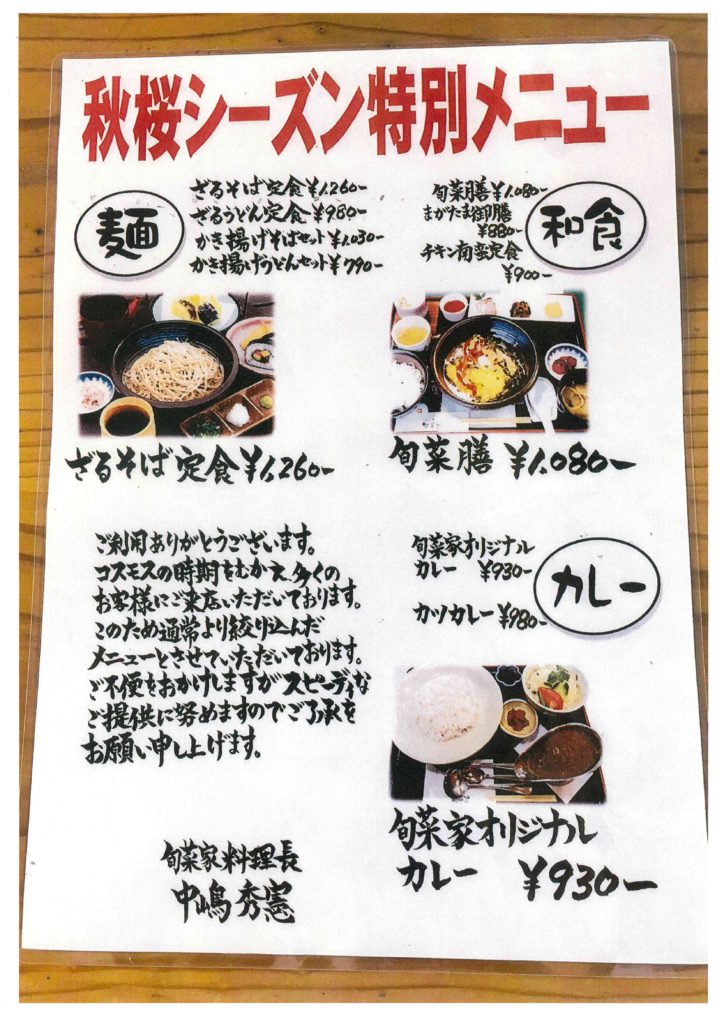 秋桜シーズン特別メニュー
麺
ざるそば定食¥1,260-
ざるうどん定食¥980-
かき揚げそばセット¥1,030-
かき揚げうどんセット¥790-
旬菜膳¥1,080-
まがたま御膳
¥880-
チキン南蛮定食
¥900-
和食
ざるそば定食¥1,260-
旬菜膳 ¥1,080-
ご利用ありがとうございます。
コスモスの時期をむかえ多くの
お客様にご来店いただいております。
このため通常より絞り込んだ
メニューとさせていただいております。
ご不便をおかけしますがスピーディな
ご提供に努めますのでご了承を
お願い申し上げます。
旬菜家料理長
中嶋秀憲
旬菜家オリジナル
カレー ¥930-
カツカレー¥980-
カレー
旬菜家オリジナル
カレー ¥930-